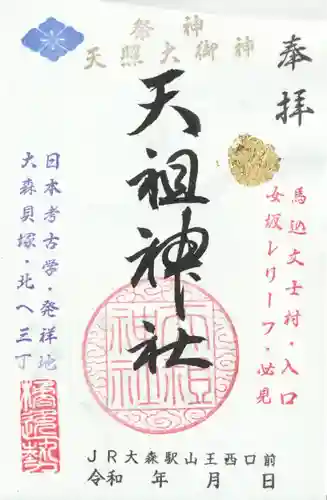 奉拝
馬込文士村・入口
女坂レリーフ・必見
祭神
天照大御神
天祖神社
天祖神社
日本考古学・発祥地
大森貝塚・北へ三丁
JR大森駅山王西口前
令和 年 月 日